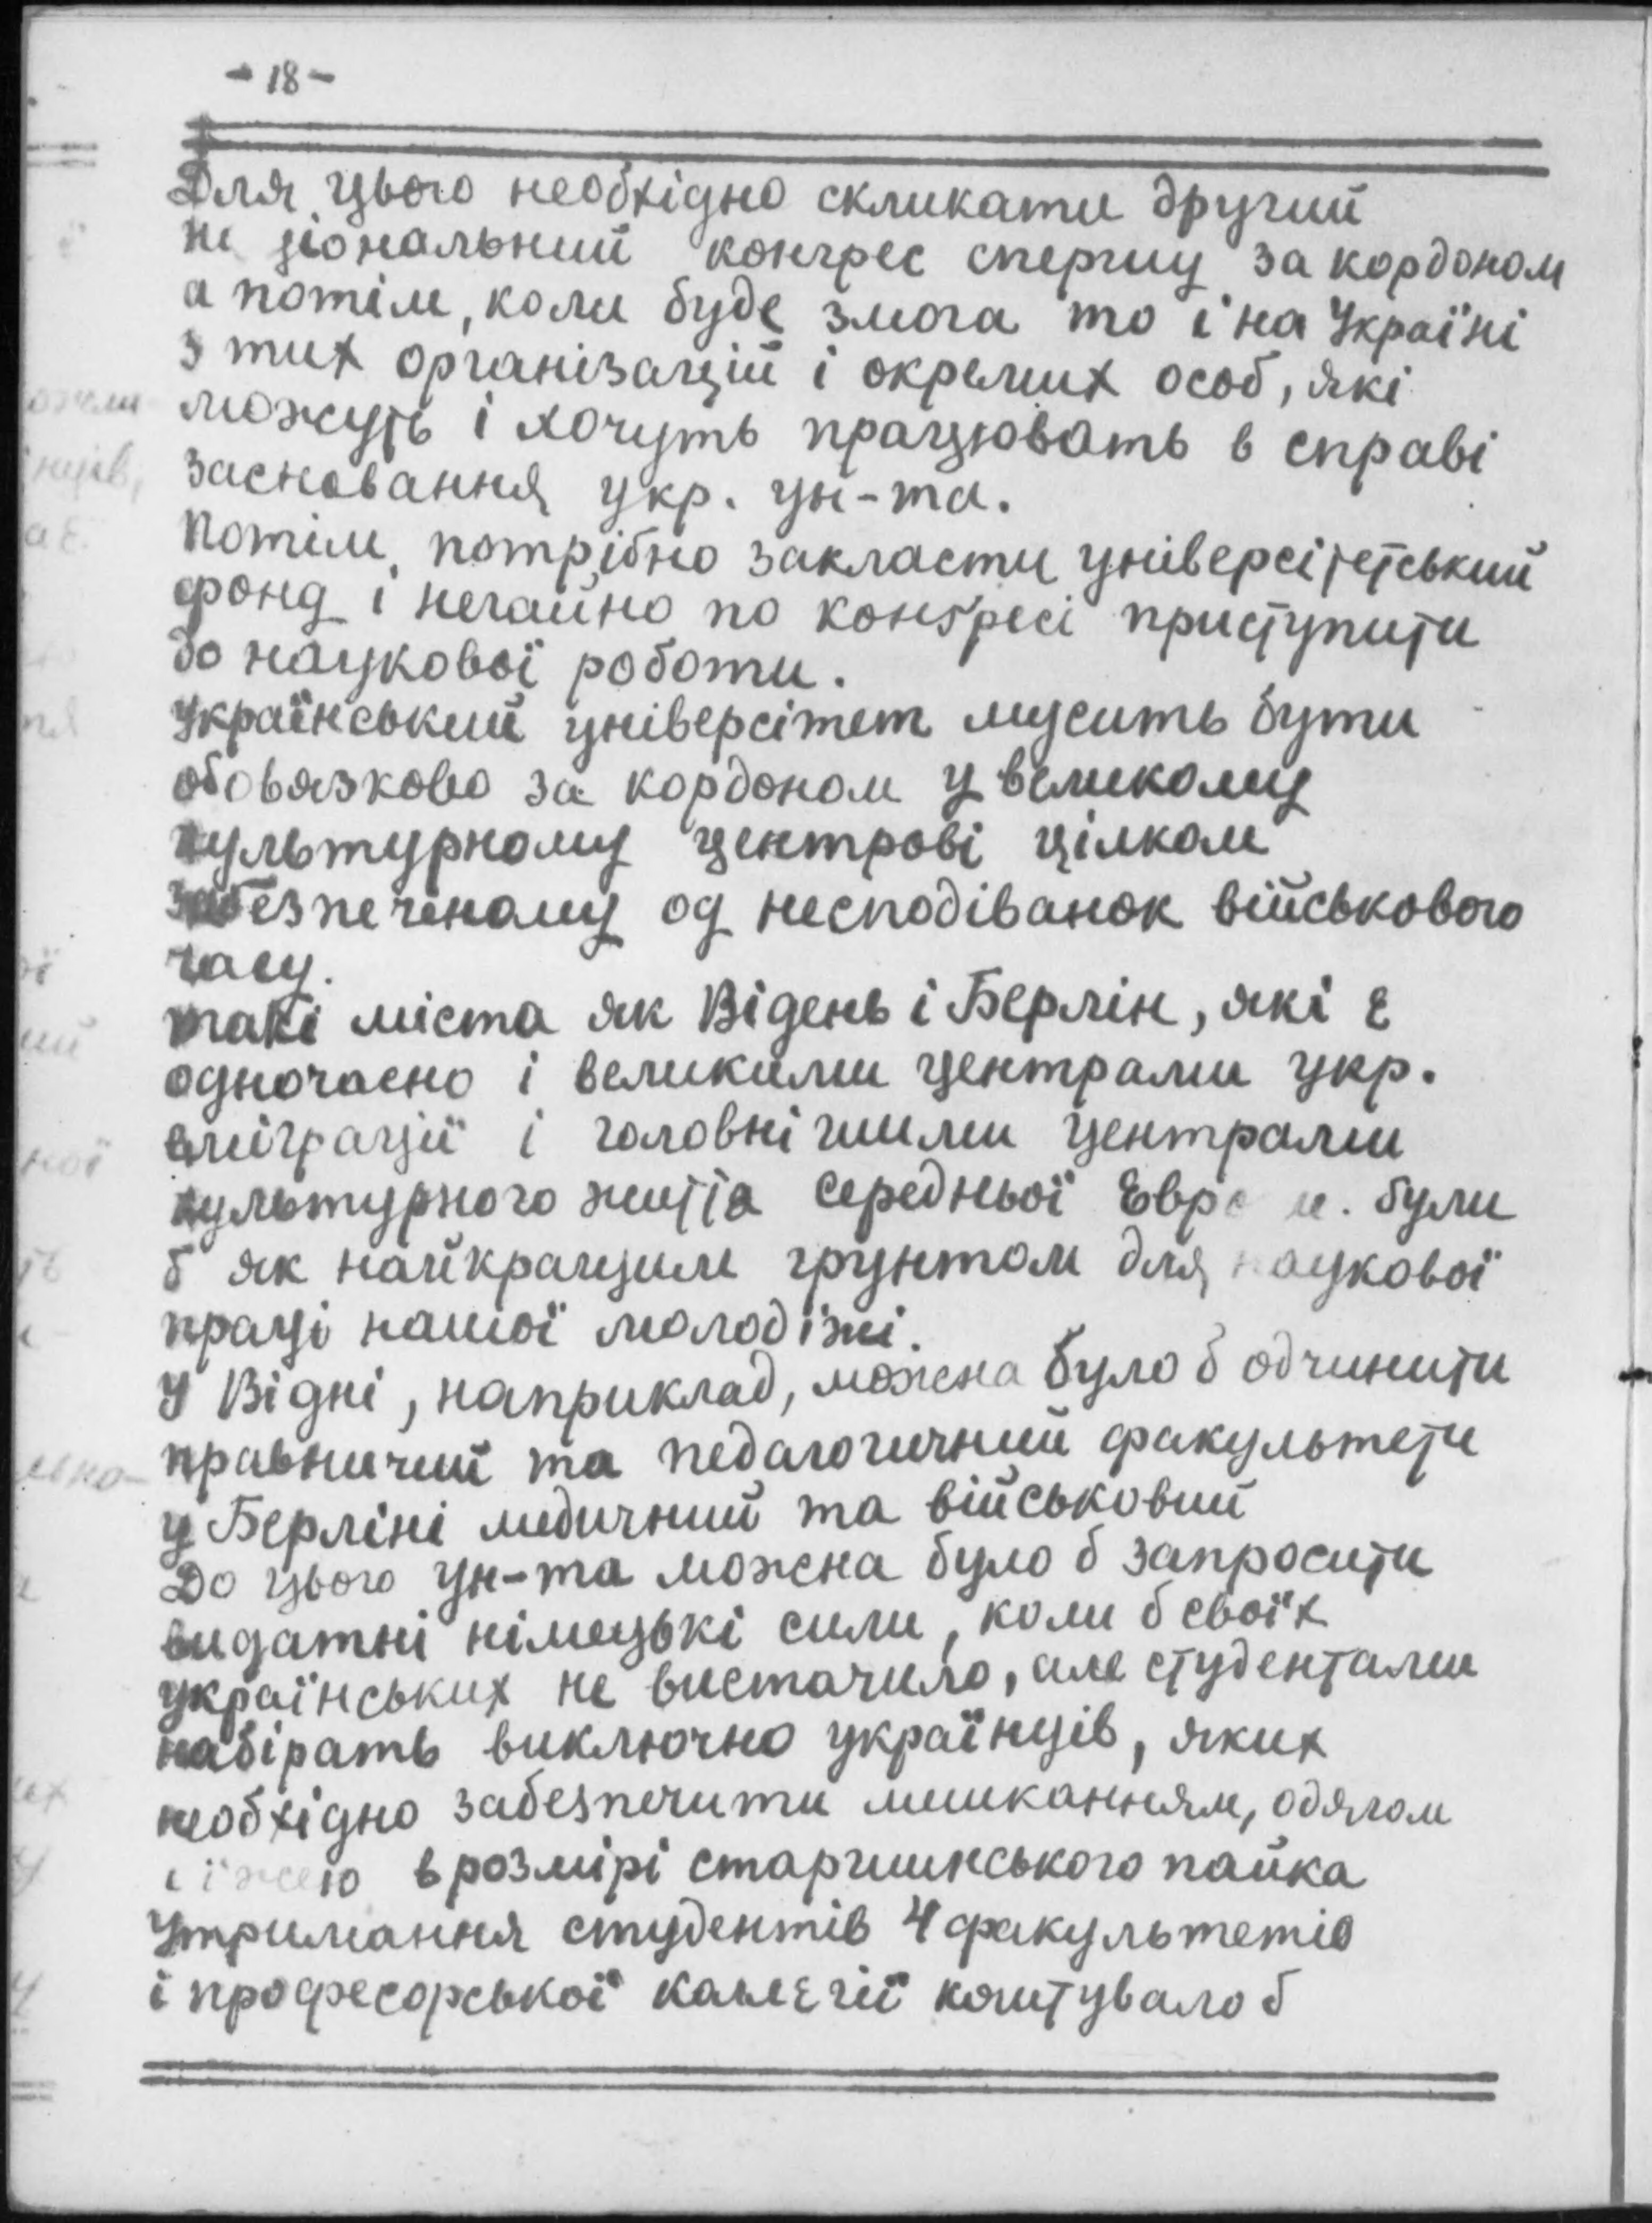 - 18 -
Для цього необхідно скликати другий
на ціональний конгрес спершу за кордоном
а потім, коли буде змога то і на Україні
з тих організацій і окремих особ, які
можуть і хочуть працювать в справі
засновання укр. ун-та.
Потім потрібно закласти універсітетський
фонд і негайно по конґресі приступити
до наукової роботи.
Український універсітет мусить бути
обовязково за кордоном у великому
культурному центрові цілком
забезпеченому од несподіванок військового
часу.
такі міста як Відень і Берлін, які є
одночасно і великими центрами укр.
еміґрації і головнішими центрами
культурного життя середньої Европи. були
б як найкращим грунтом для наукової
праці нашої молодіжі.
У Відні, наприклад, можна було б одчинити
правничий та педагогичний факультети
у Берліні медичний та військовий
До цього ун-та можна було б запросити
видатні німецькі сили, коли б своїх
українських не вистачило, але студентами
набірать виключно українців, яких
необхідно забезпечити мешканням, одягом
і їжею в розмірі старшинського пайка
Утримання студентів 4 факультетів
і професорської колєгії коштувало б